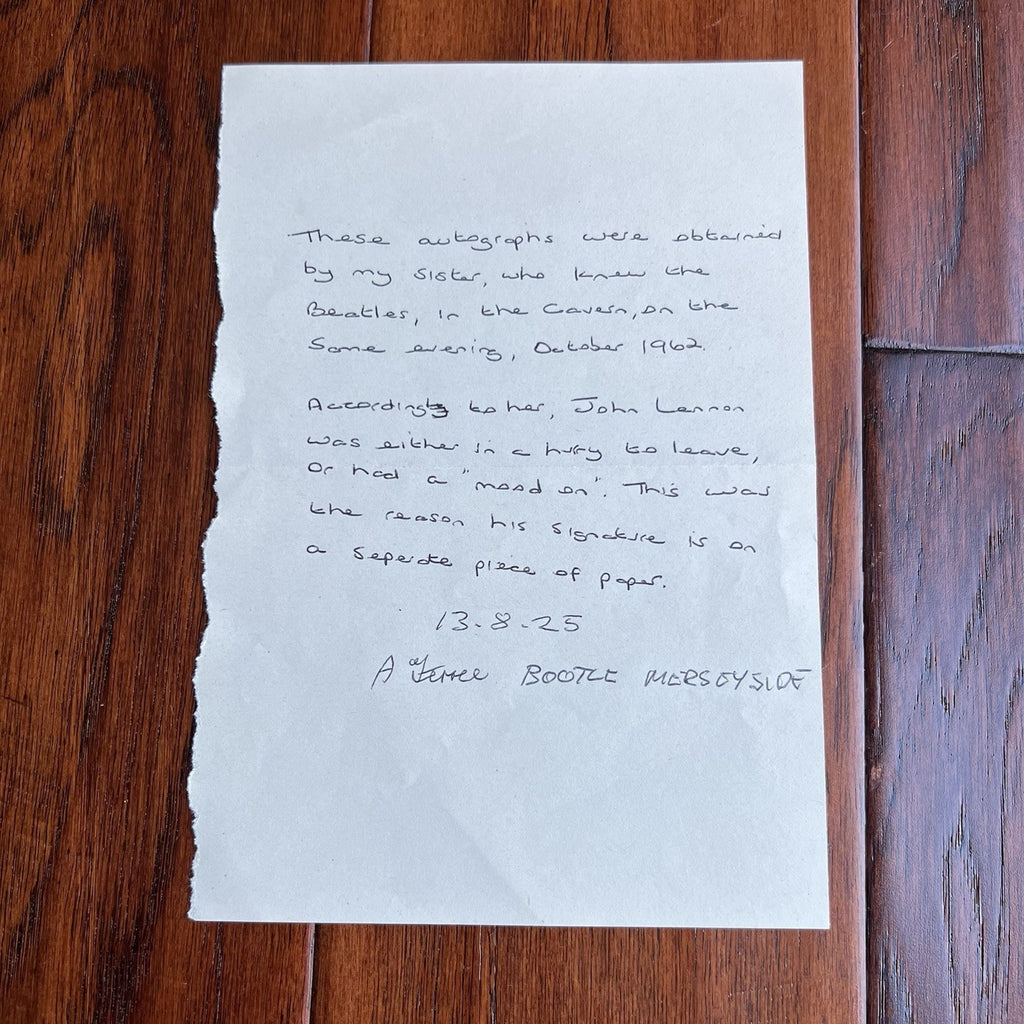 These autographs were obtained
by my sister, who knew the
Beatles, in the Cavern, on the
same evening, October 1962.
According to her, John Lennon
was either in a hurry to leave,
or had a "mood on". This was
the reason his signature is on
a seperate piece of paper.
13-8-25
A BOOTLE MERSEYSIDE